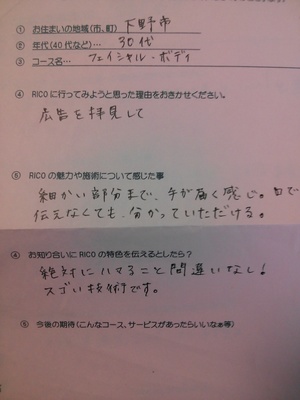 ① お住まいの地域(市、町) 下野市
② 年代(40代など)… 30代
③ コース名… フェイシャル・ボディ
④ RICOに行ってみようと思った理由をおきかせください。
広告を拝見して
⑤ RICOの魅力や施術について感じた事
細かい部分まで、手が届く感じ。口で
伝えなくても、分かっていただける。
④ お知り合いにRICOの特色を伝えるとしたら?
絶対にハマること間違いなし!
スゴい技術です。
⑤ 今後の期待(こんなコース、サービスがあったらいいなぁ等)